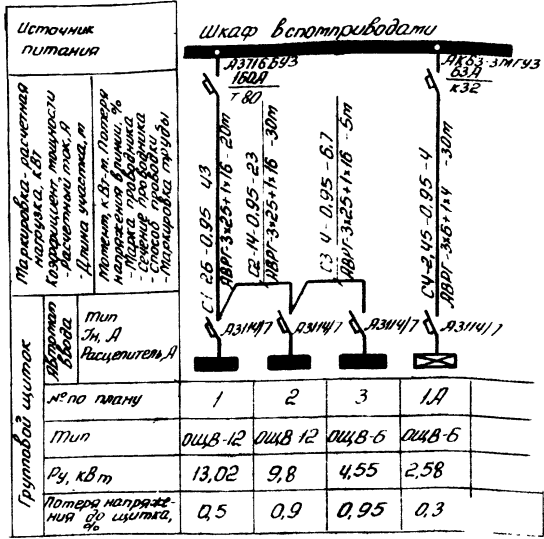 Источник
питания
Шкаф вспомприводами
А3716БУЗ
160А
Т 80
АК63-3МГУЗ
63А
К32
Маркировка - расчетная
нагрузка, кВт
Коэффициент, мощности
- Расчетный ток, А
Длина участка, м
Момент, кВт-м. Потеря
напряжения в линии, %
- Марка проводника
- Сечение проводника
- Способ проводки
- Маркировка трубы
С1 26-0.95 43
АВРГ-3×25+1×16 -20м
С2-14-0.95-23
АВРГ-3×25+1×16 -30м
С3 4-0.95-6.7
АВРГ-3×25+1×16 -5м
С4-2,45-0.95-4
АВРГ-3×6+1×4 -30м
Групповой щиток
Автомат
ввода
Тип
Iн, А
Расцепитель, А
А3114/7
А3114/7
А3114/7
А3114/7
№ по плану 1 2 3 1А
Тип ОЩВ-12 ОЩВ 12 ОЩВ-6 ОЩВ-6
Ру, кВт 13,02 9,8 4,55 2,58
Потеря напряже-
ния до щитка,
% 0,5 0,9 0,95 0,3